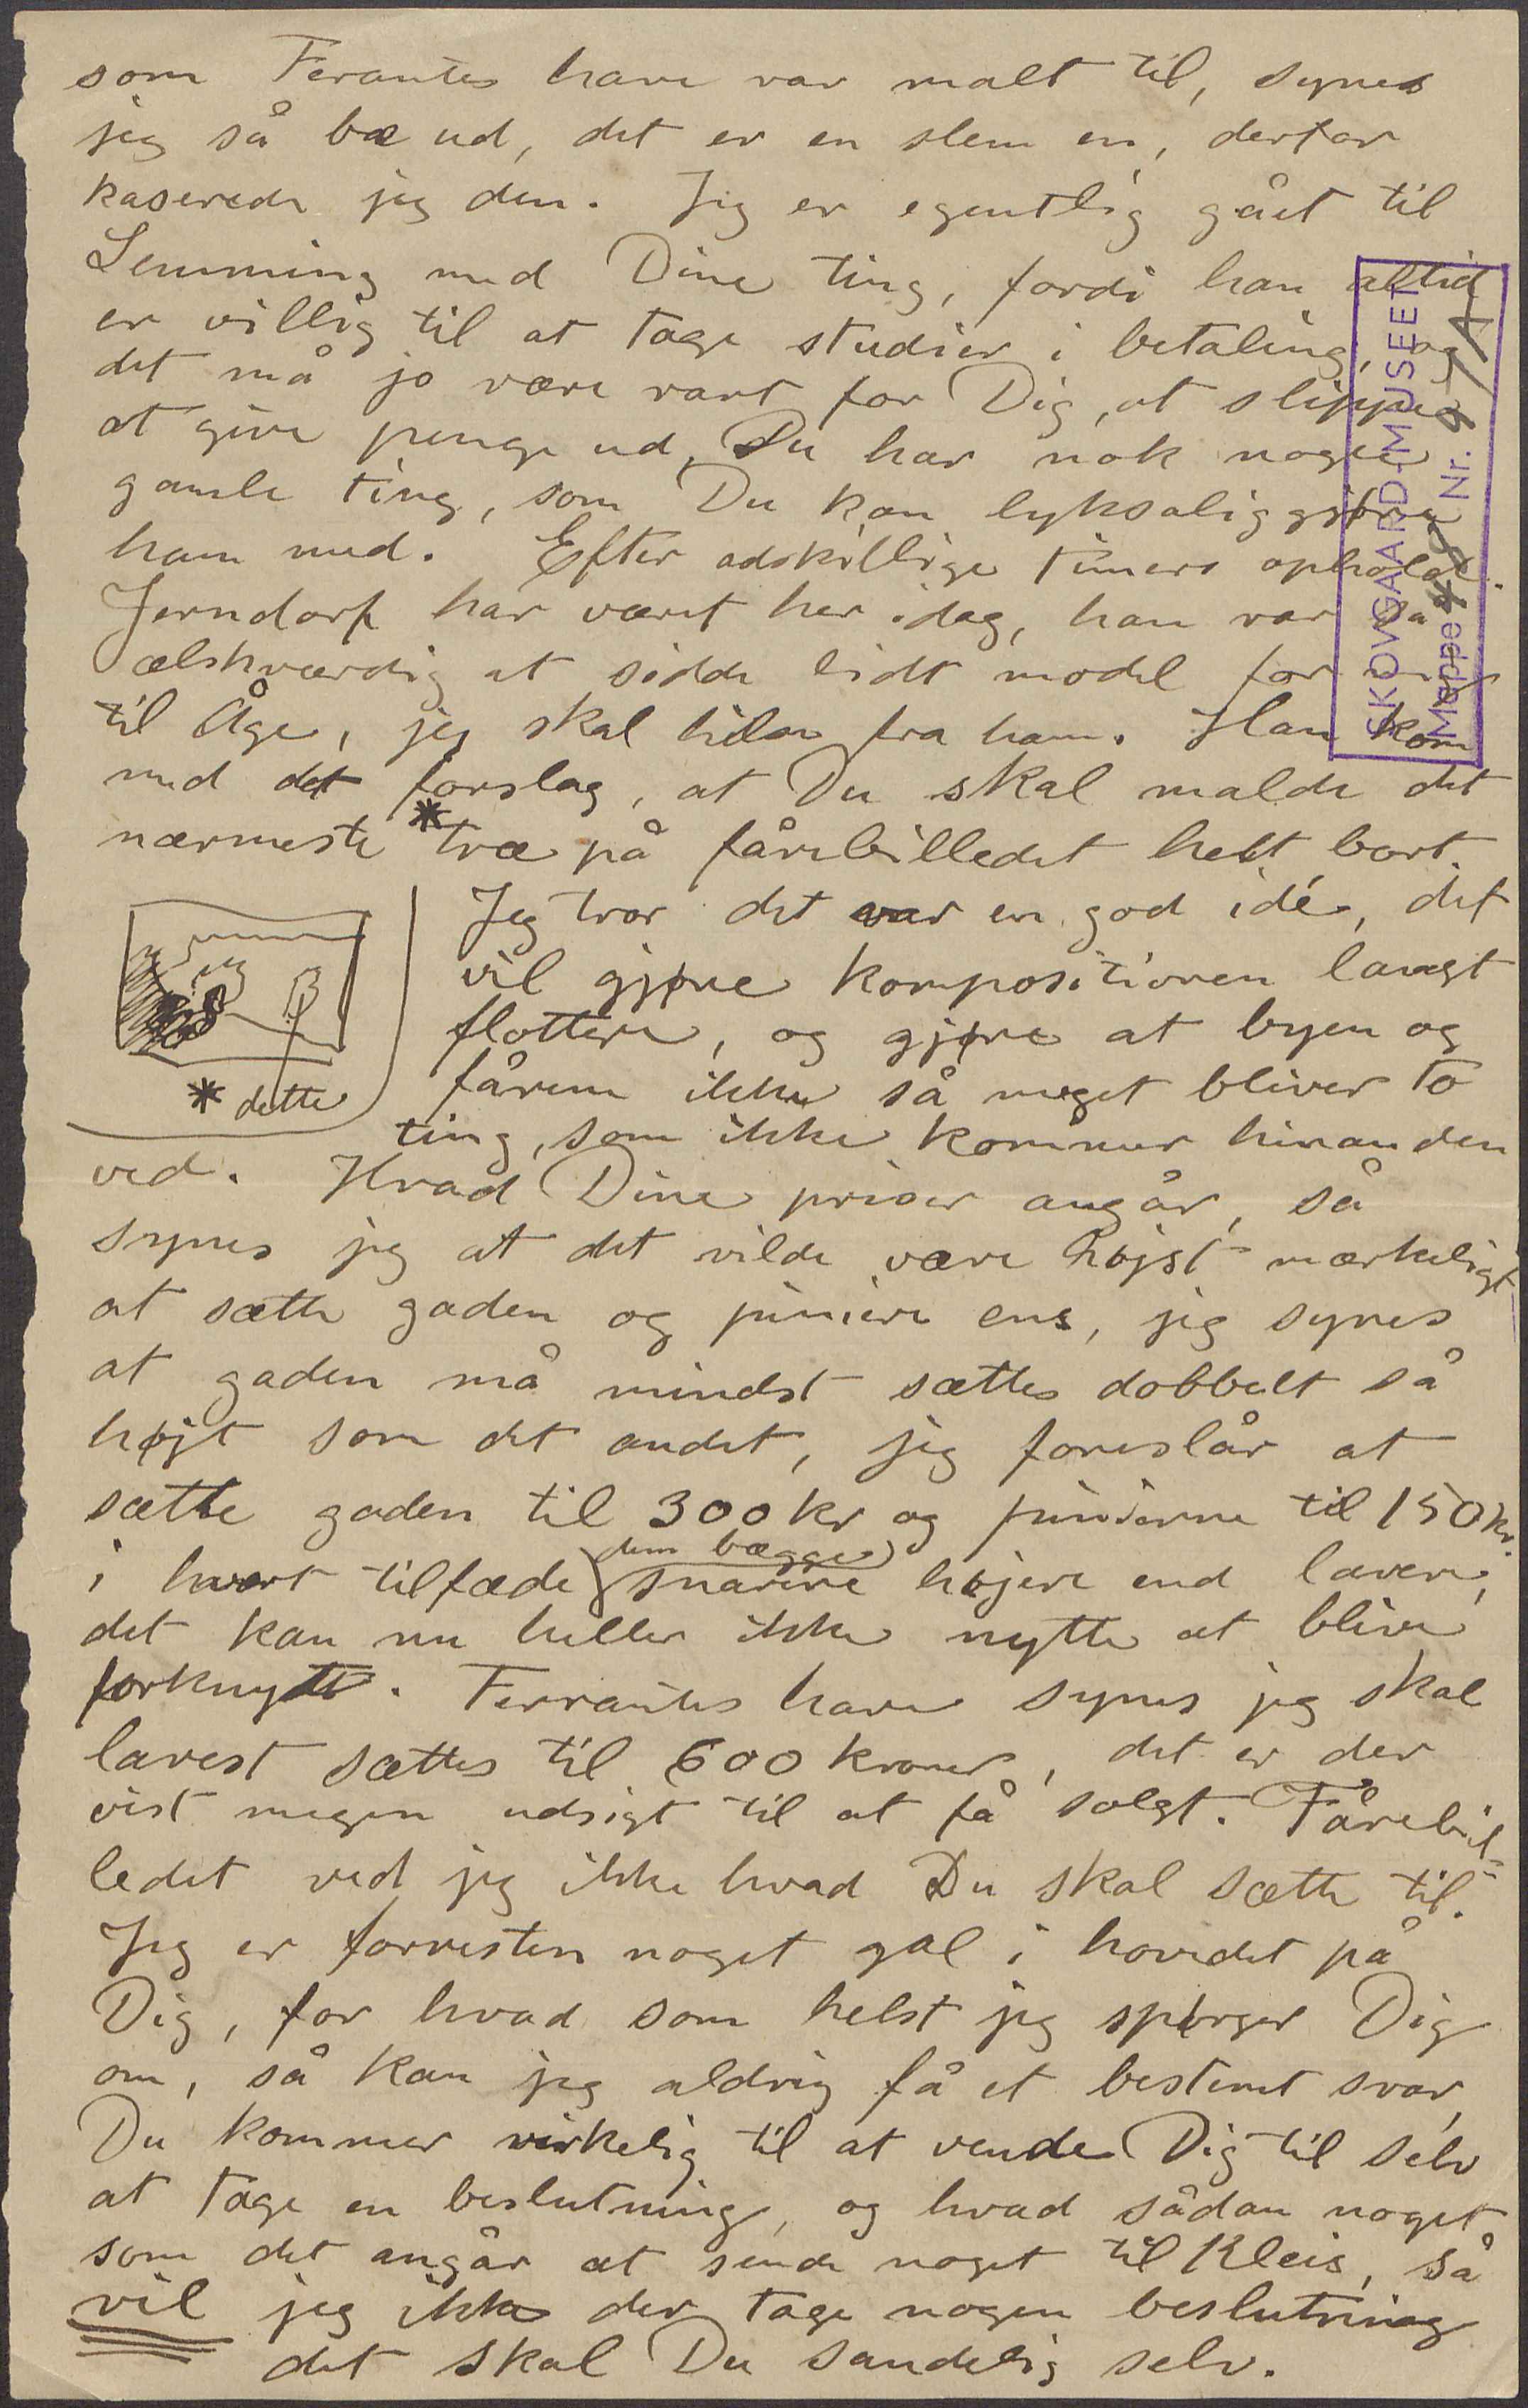 som Ferantes have var malt til, synes
jeg så bæ ud, det er en slem en, derfor
kaserede jeg den. Jeg er egentlig gået til
Lemming med Dine ting, fordi han altid
er villig til at tage studier i betaling, og
det må jo være rart for Dig, at slippe
at give penge ud, Du har nok nogle
gamle ting, som Du kan lyksaliggjøre
ham med. Efter adskillige timers ophold.
Jerndorf har været her idag, han var så
ælskværdig at sidde lidt model for
til Åge, jeg skal hilse fra ham. Han kom
med det forslag, at Du skal malde det
nærmeste * træ på fårebilledet helt bort.
Jeg tror det var en god idé, det
vil gjøre kompositionen langt
flottere, og gjøre at byen og
fårene ikke så meget bliver to
* dette
ting, som ikke kommer hinanden
ved. Hvad Dine priser angår, så
synes jeg at det vilde være højst mærkeligt
at sætte gaden og pinierne ens, jeg synes
at gaden må mindst sættes dobbelt så
højt som det andet, jeg foreslår at
sætte gaden til 300 kr og pinierne til 150 kr.
i hvert tilfæde dem bægge snarere højere end lavere,
det kan nu heller ikke nytte at blive
forknytt. Ferrantes have synes jeg skal
lavest sættes til 600 kroner, det er der
vist megen udsigt til at få solgt. Fårebil-
ledet ved jeg ikke hvad Du skal sætte til.
Jeg er forresten noget gal i hovedet på
Dig, for hvad som helst jeg spørger Dig
om, så kan jeg aldrig få et bestemt svar,
Du kommer virkelig til at vende Dig til selv
at tage en beslutning, og hvad sådan noget
som det angår at sende noget til Kleis, så
vil jeg ikke der tage nogen beslutning
det skal Du sandelig selv.
SKOVGAARD-MUSEET
Mappe Nr.